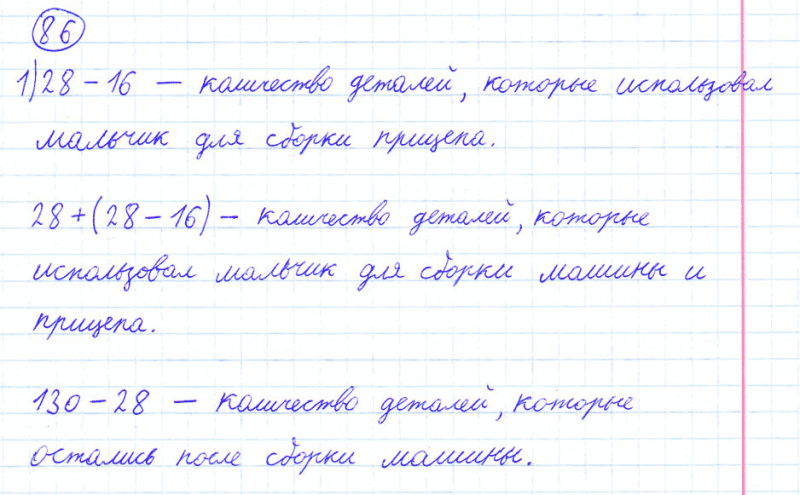 86
1) 28 - 16 — количество деталей, которые использовал
мальчик для сборки прицепа.
28 + (28 - 16) — количество деталей, которые
использовал мальчик для сборки машины и
прицепа.
130 - 28 — количество деталей, которые
остались после сборки машины.